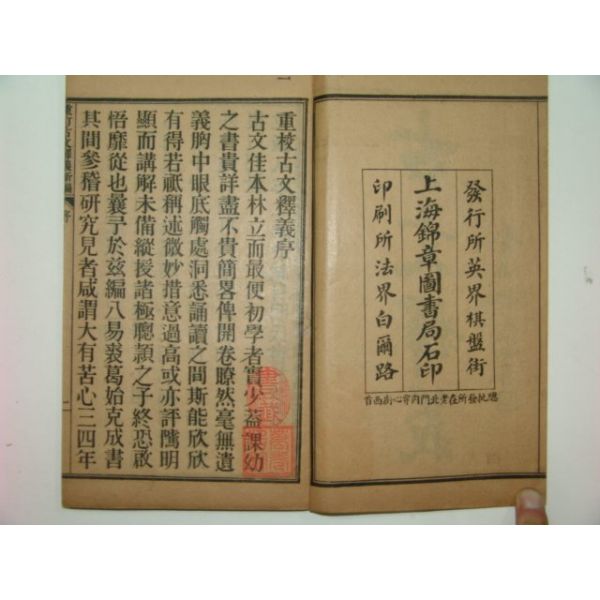 發行所英界棋盤街
上海錦章圖書局石印
印刷所法界白爾路
總批發所在老北門內穿心街西首
重校古文釋義序
古文佳本林立而最便初學者實少蓋課幼
之書貴詳盡不貴簡畧俾開卷瞭然毫無遺
義胸中眼底觸處洞悉誦讀之間斯能欣欣
有得若祗稱述微妙措意過高或亦評隲明
顯而講解未備縱授諸極聰穎之子終恐啟
悟靡從也曩予於兹編八易裘葛始克成書
其間參稽研究見者咸謂大有苦心二四年